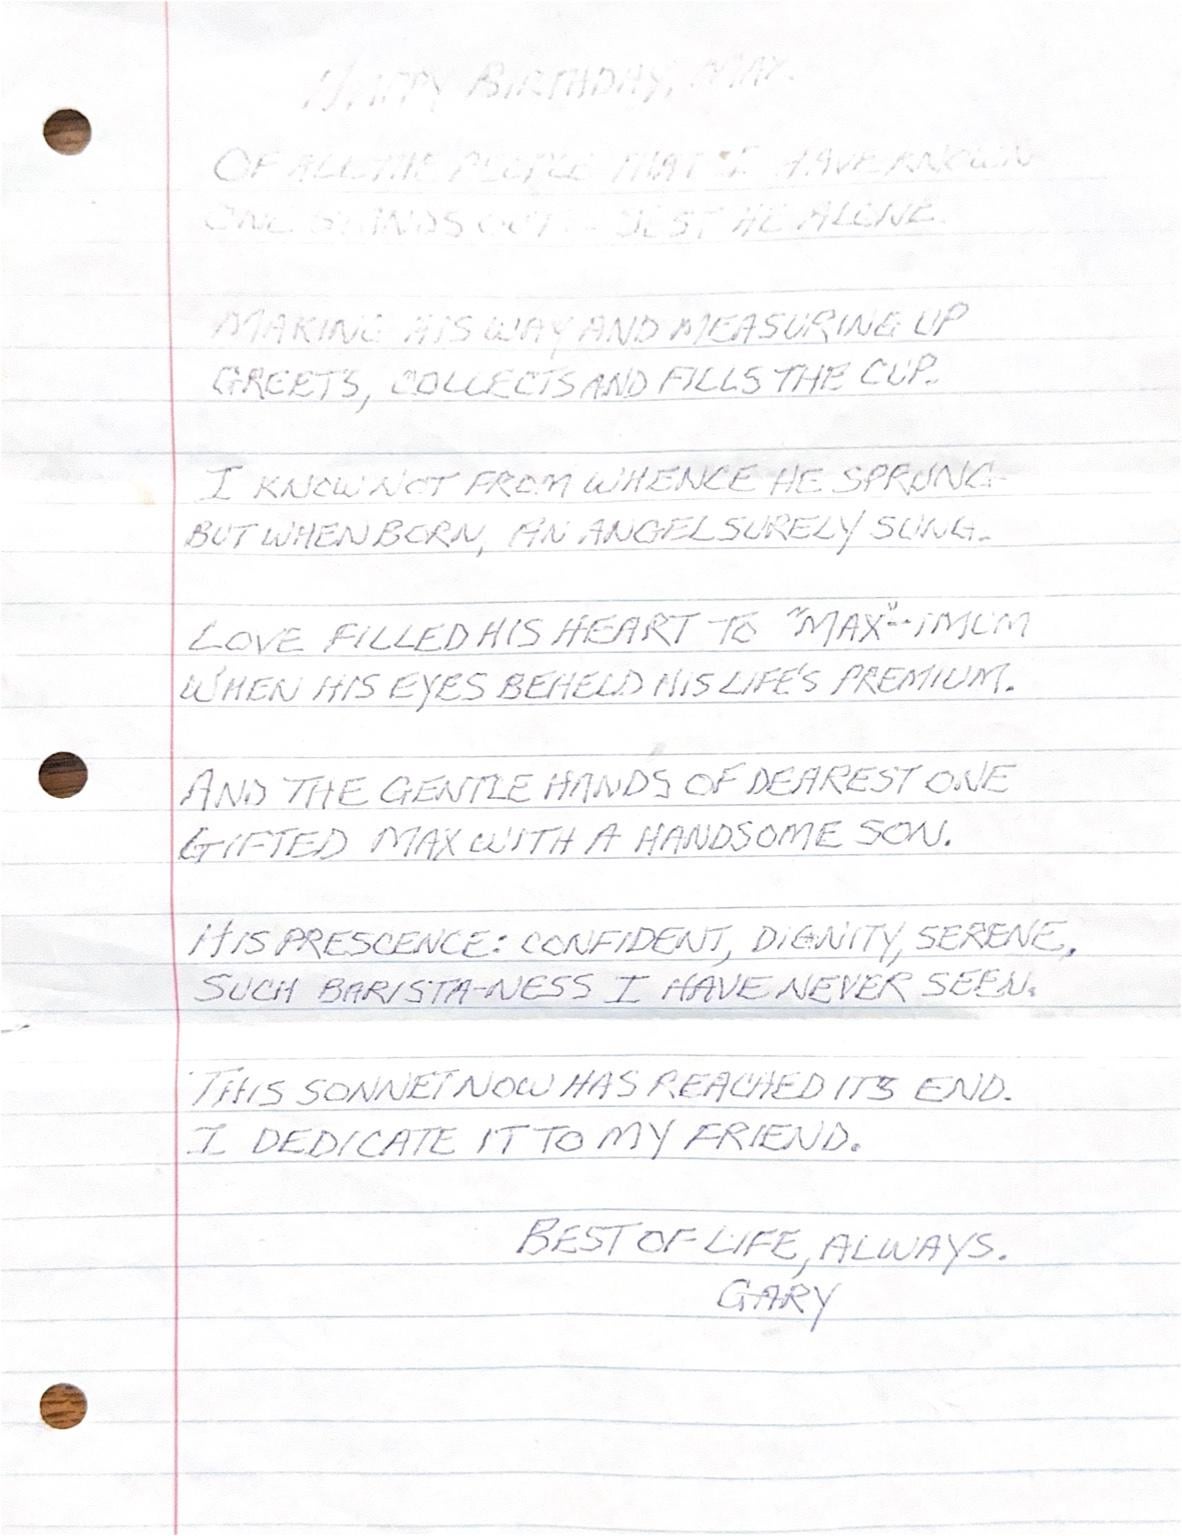 HAPPY BIRTHDAY, MAX.
OF ALL THE PEOPLE THAT I HAVE KNOWN
ONE STANDS OUT -- JUST HE ALONE.
MAKING HIS WAY AND MEASURING UP
GREETS, COLLECTS AND FILLS THE CUP.
I KNOW NOT FROM WHENCE HE SPRUNG
BUT WHEN BORN, AN ANGEL SURELY SUNG.
LOVE FILLED HIS HEART TO "MAX"--IMUM
WHEN HIS EYES BEHELD HIS LIFE'S PREMIUM.
AND THE GENTLE HANDS OF DEAREST ONE
GIFTED MAX WITH A HANDSOME SON.
HIS PRESCENCE: CONFIDENT, DIGNITY, SERENE,
SUCH BARISTA-NESS I HAVE NEVER SEEN.
THIS SONNET NOW HAS REACHED ITS END.
I DEDICATE IT TO MY FRIEND.
BEST OF LIFE, ALWAYS.
GARY